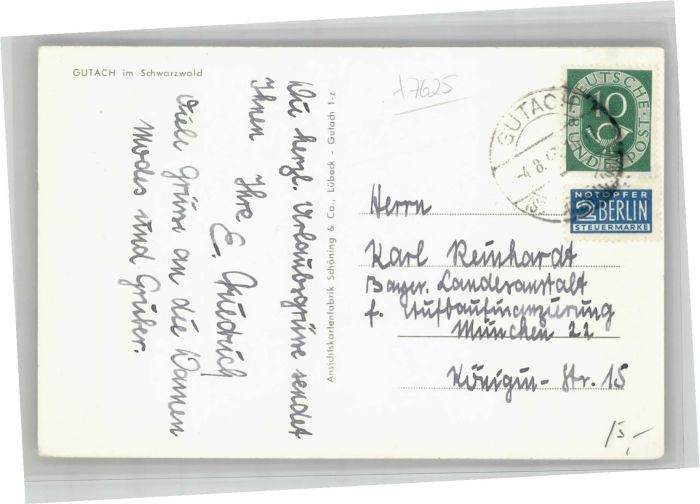 GUTACH im Schwarzwald
Die herzl. Urlaubsgrüsse sendet
Ihnen Ihre E. Friedrich
Viele Grüsse an die Damen
Modes und Gruber.
Ansichtskartenfabrik Schöning & Co., Lübeck - Gutach 1-z
+7625
GUTACH
-4.8.
DEUTSCHE BUNDESPOST
10
NOTOPFER
2 BERLIN
STEUERMARKE
Herrn
Karl Reinhardt
Bayer. Landesanstalt
f. Aufbaufinanzierung
München 22
Königin-Str. 15
15,-